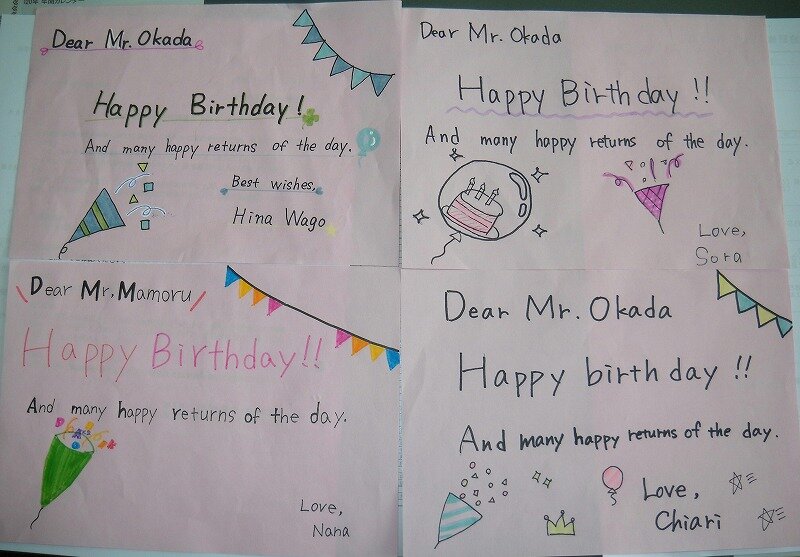 Dear Mr. Okada
Happy Birthday!
And many happy returns of the day.
Best wishes,
Hina Wago
Dear Mr. Okada
Happy Birthday!!
And many happy returns of the day.
Love,
Sora
Dear Mr, Mamoru
Happy Birthday!!
And many happy returns of the day.
Love,
Nana
Dear Mr. Okada
Happy birthday!!
And many happy returns of the day.
Love,
Chiari